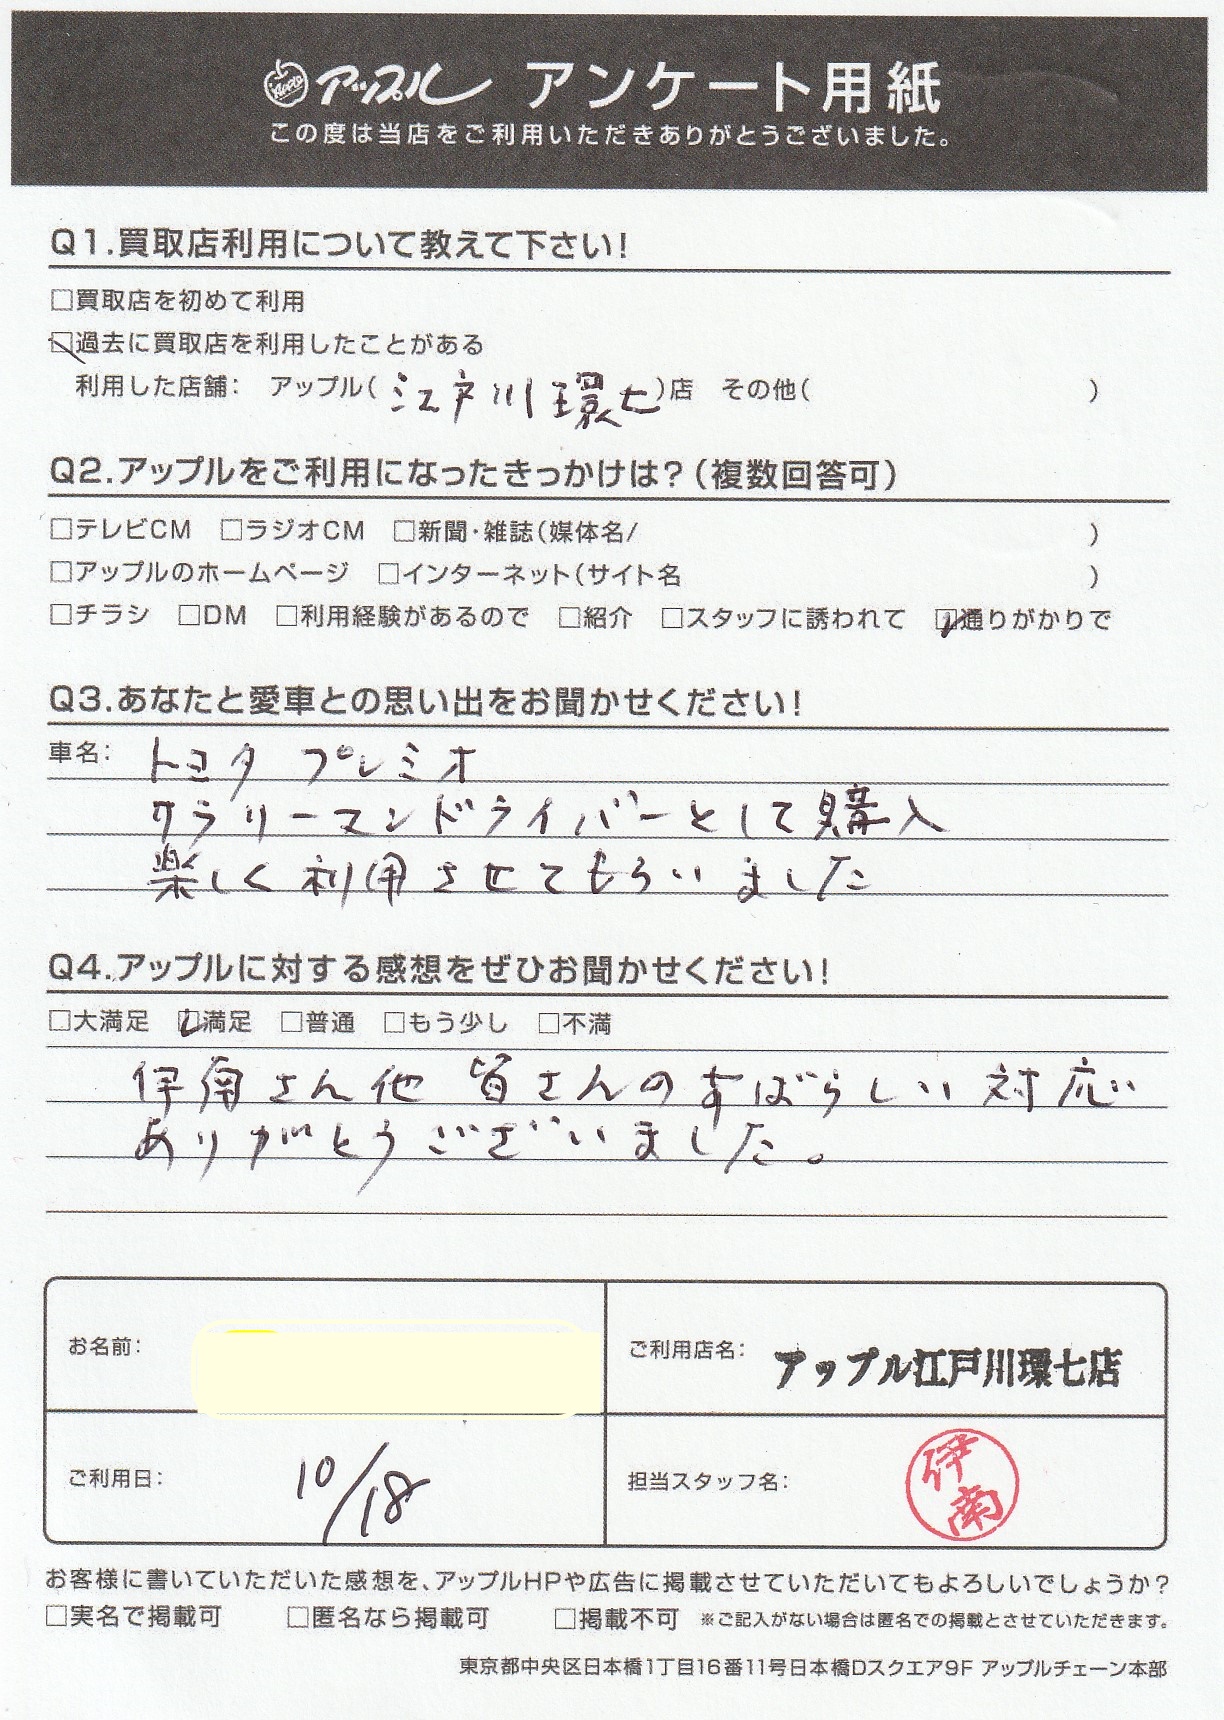 アップル アンケート用紙
この度は当店をご利用いただきありがとうございました。
Q1.買取店利用について教えて下さい!
□買取店を初めて利用
☑過去に買取店を利用したことがある
利用した店舗: アップル(江戸川環七)店 その他( )
Q2.アップルをご利用になったきっかけは?(複数回答可)
□テレビCM □ラジオCM □新聞・雑誌(媒体名/ )
□アップルのホームページ □インターネット(サイト名 )
□チラシ □DM □利用経験があるので □紹介 □スタッフに誘われて ☑通りがかりで
Q3.あなたと愛車との思い出をお聞かせください!
車名: トヨタ プレミオ
サラリーマンドライバーとして購入
楽しく利用させてもらいました
Q4.アップルに対する感想をぜひお聞かせください!
□大満足 ☑満足 □普通 □もう少し □不満
伊南さん他 皆さんのすばらしい対応
ありがとうございました。
お名前:
ご利用店名: アップル江戸川環七店
ご利用日: 10/18
担当スタッフ名: 伊南
お客様に書いていただいた感想を、アップルHPや広告に掲載させていただいてもよろしいでしょうか?
□実名で掲載可 □匿名なら掲載可 □掲載不可 ※ご記入がない場合は匿名での掲載とさせていただきます。
東京都中央区日本橋1丁目16番11号日本橋Dスクエア9F アップルチェーン本部